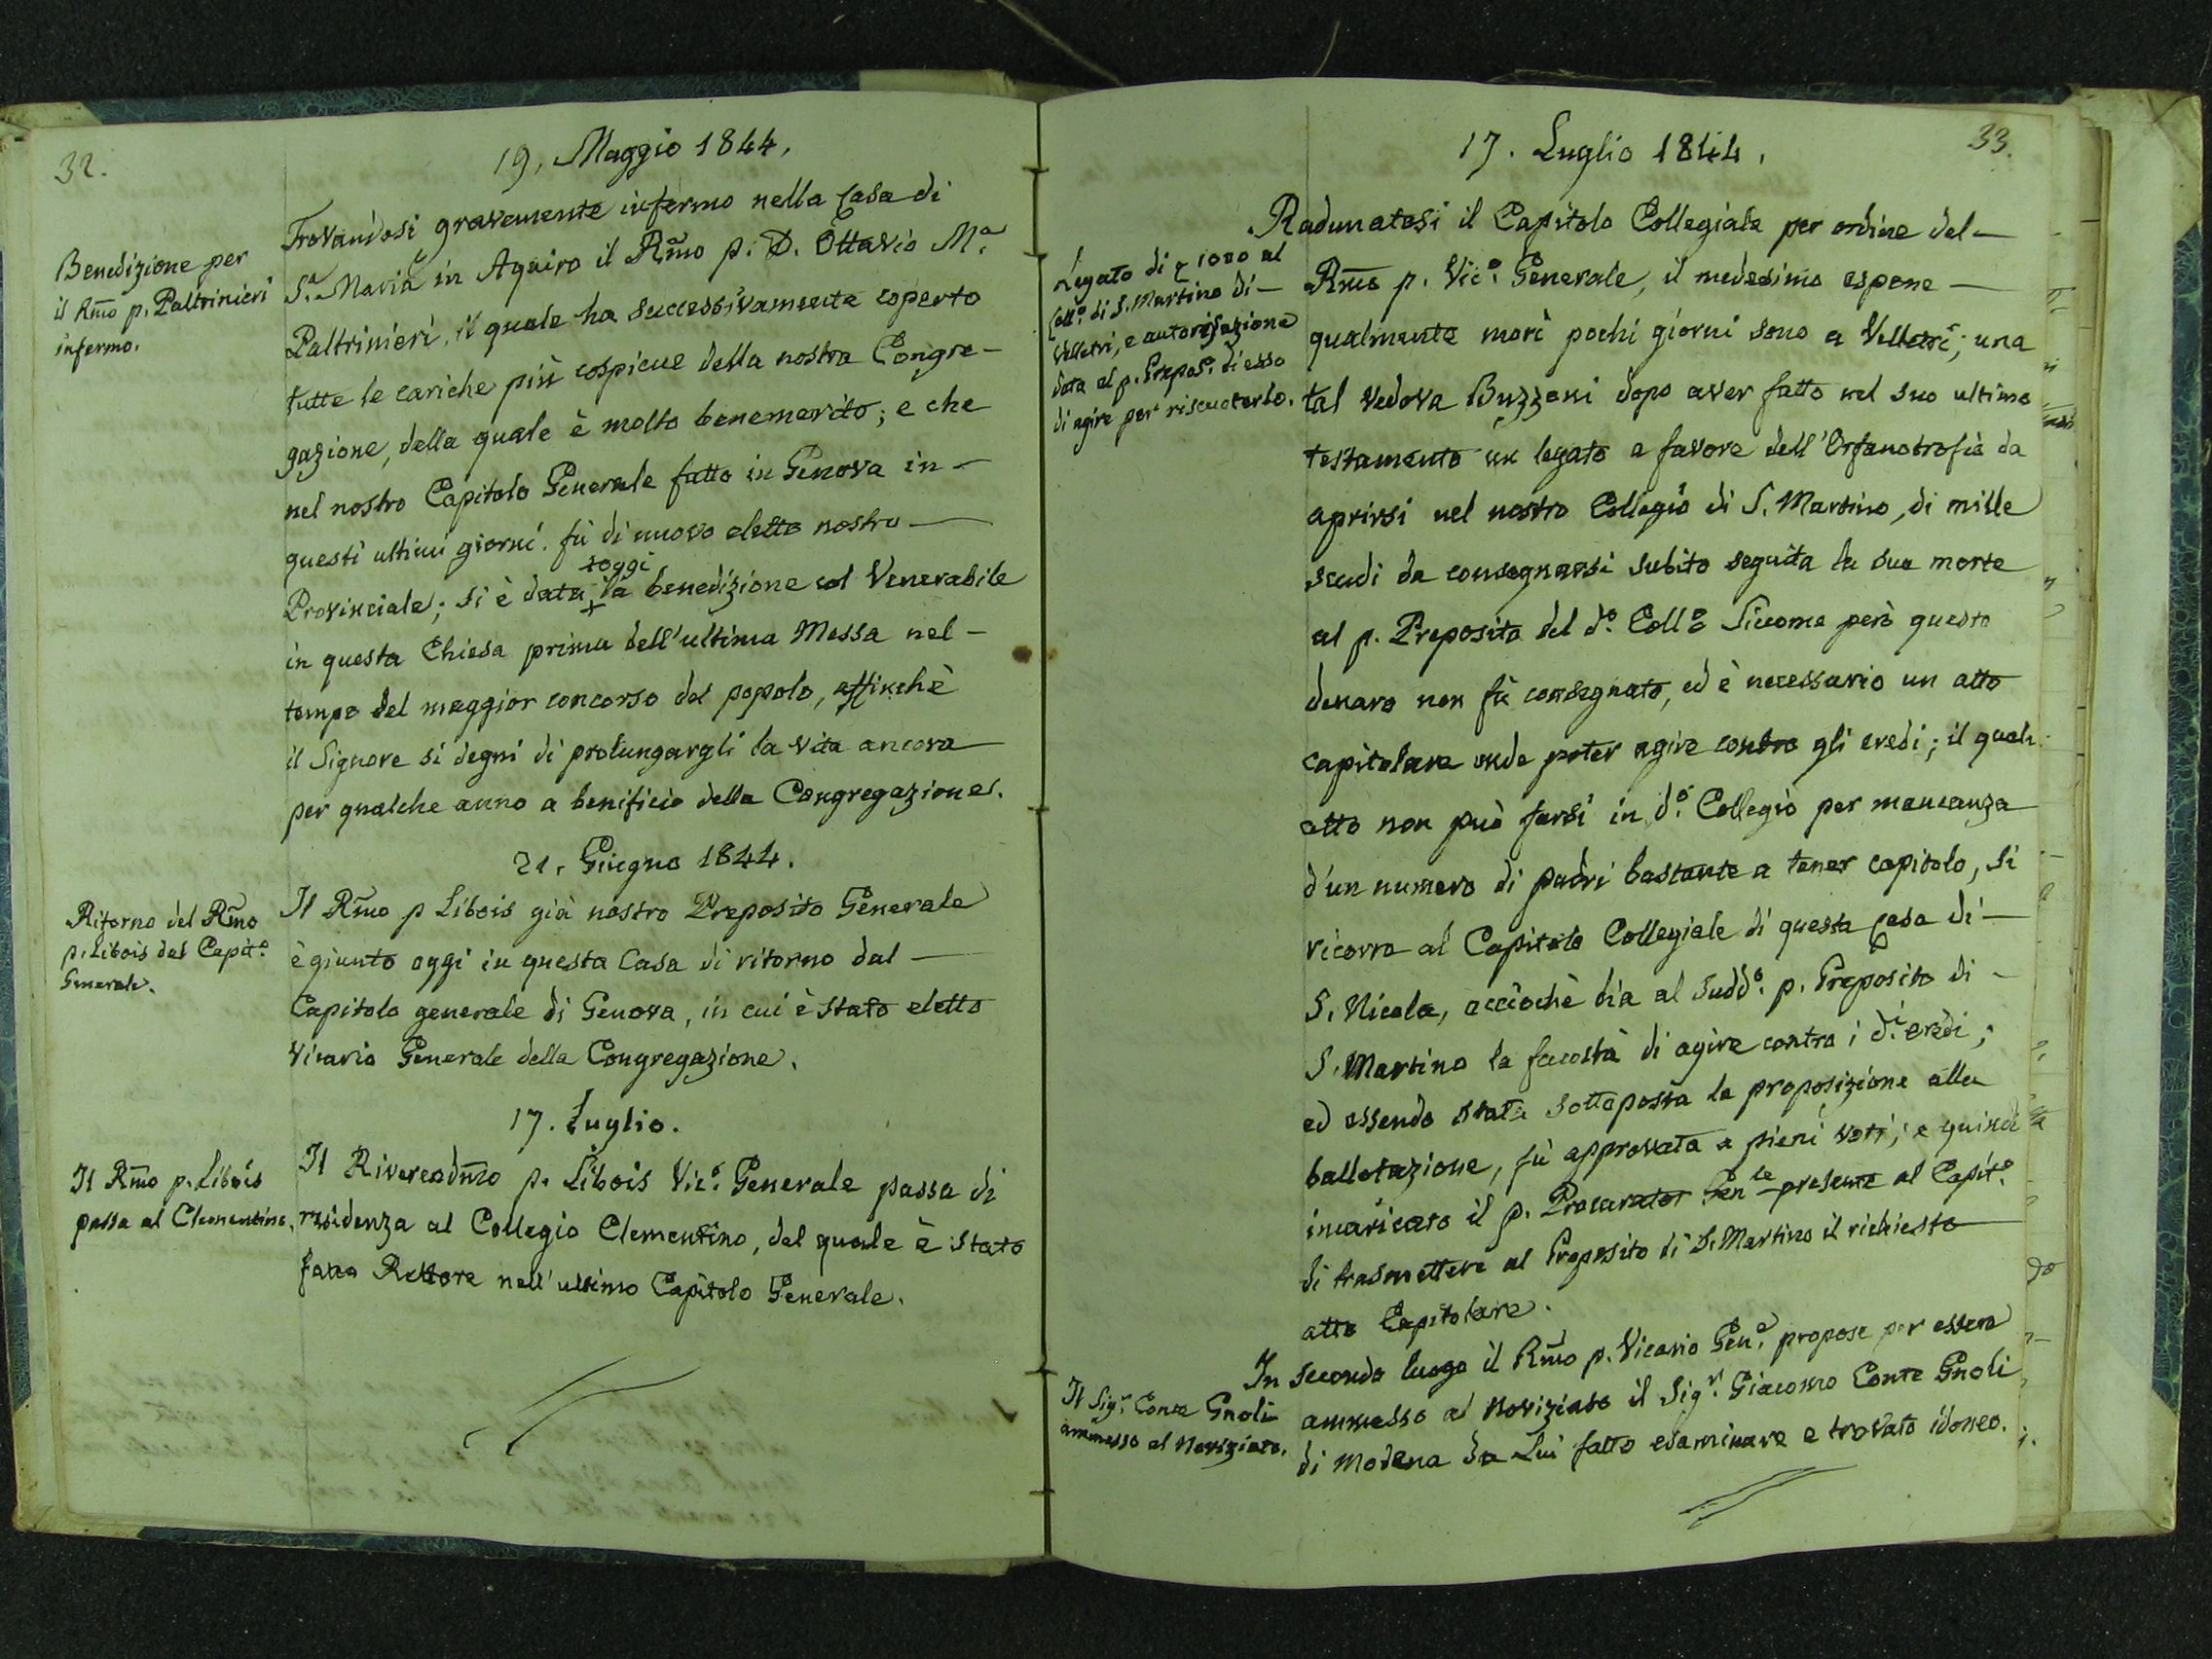 32.
19, Maggio 1844,
Benedizione per
il Rmo p. Paltrinieri
infermo.
Trovandosi gravemente infermo nella Casa di
S.a Maria in Aquiro il Rmo p. D. Ottavio M.a
Paltrinieri, il quale ha successivamente coperto
tutte le cariche più cospicue della nostra Congre-
gazione, della quale è molto benemerito; e che
nel nostro Capitolo Generale fatto in Genova in-
questi ultimi giorni, fù di nuovo eletto nostro
+oggi
Provinciale; si è data + la benedizione col Venerabile
in questa Chiesa prima dell'ultima Messa nel-
tempo del maggior concorso del popolo, affinchè
il Signore si degni di prolungargli la vita ancora
per qualche anno a benificio della Congregazione.
21, Giugno 1844.
Ritorno del Rmo
p. Libois dal Capit.o
Generale.
Il Rmo p Libois già nostro Preposito Generale
è giunto oggi in questa Casa di ritorno dal —
Capitolo generale di Genova, in cui è stato eletto
Vicario Generale della Congregazione.
17. Luglio.
Il Rmo p. Libois
passa al Clementino.
Il Rivereadmo p. Libois Vic.o Generale passa di
residenza al Collegio Clementino, del quale è stato
fatto Rettore nell'ultimo Capitolo Generale.
33.
17. Luglio 1844,
Legato di 1000 al
Coll.o di S. Martino di —
Velletri, e autorisazione
data al p. Prepos.o di esso
di agire per riscuoterlo.
Radunatosi il Capitolo Collegiale per ordine del —
Rmo p. Vic.o Generale, il medesimo espone —
qualmente morì pochi giorni sono a Velletri; una
tal vedova Buzzoni dopo aver fatto nel suo ultimo
testamento un legato a favore dell'Orfanotrofio da
aprirsi nel nostro Collegio di S. Martino, di mille
scudi da consegnarsi subito seguita la sua morte
al p. Preposito del d.o Coll.o Siccome però questo
denaro non fù consegnato, ed è necessario un atto
capitolare onde poter agire contro gli eredi; il quale
atto non può farsi in d.o Collegio per mancanza
d'un numero di padri bastante a tener capitolo, si
ricorre al Capitolo Collegiale di questa Casa di —
S. Nicola, acciochè dia al Sudd.o p. Preposito di —
S. Martino la facoltà di agire contro i d.i eredi;
ed essendo stata sottoposta la proposizione alla
ballotazione, fù approvata a pieni voti; e quindi
incaricato il p. Procurator Gen.le presente al Capit.o
di trasmettere al Preposito di S. Martino il richiesto
atto Capitolare.
Il Sig.r Conte Gnoli
ammesso al Noviziato.
In secondo luogo il Rmo p. Vicario Gen.e propose per essere
ammesso al Noviziato il Sig.r Giacomo Conte Gnoli
di Modena da Lui fatto esaminare e trovato idoneo.